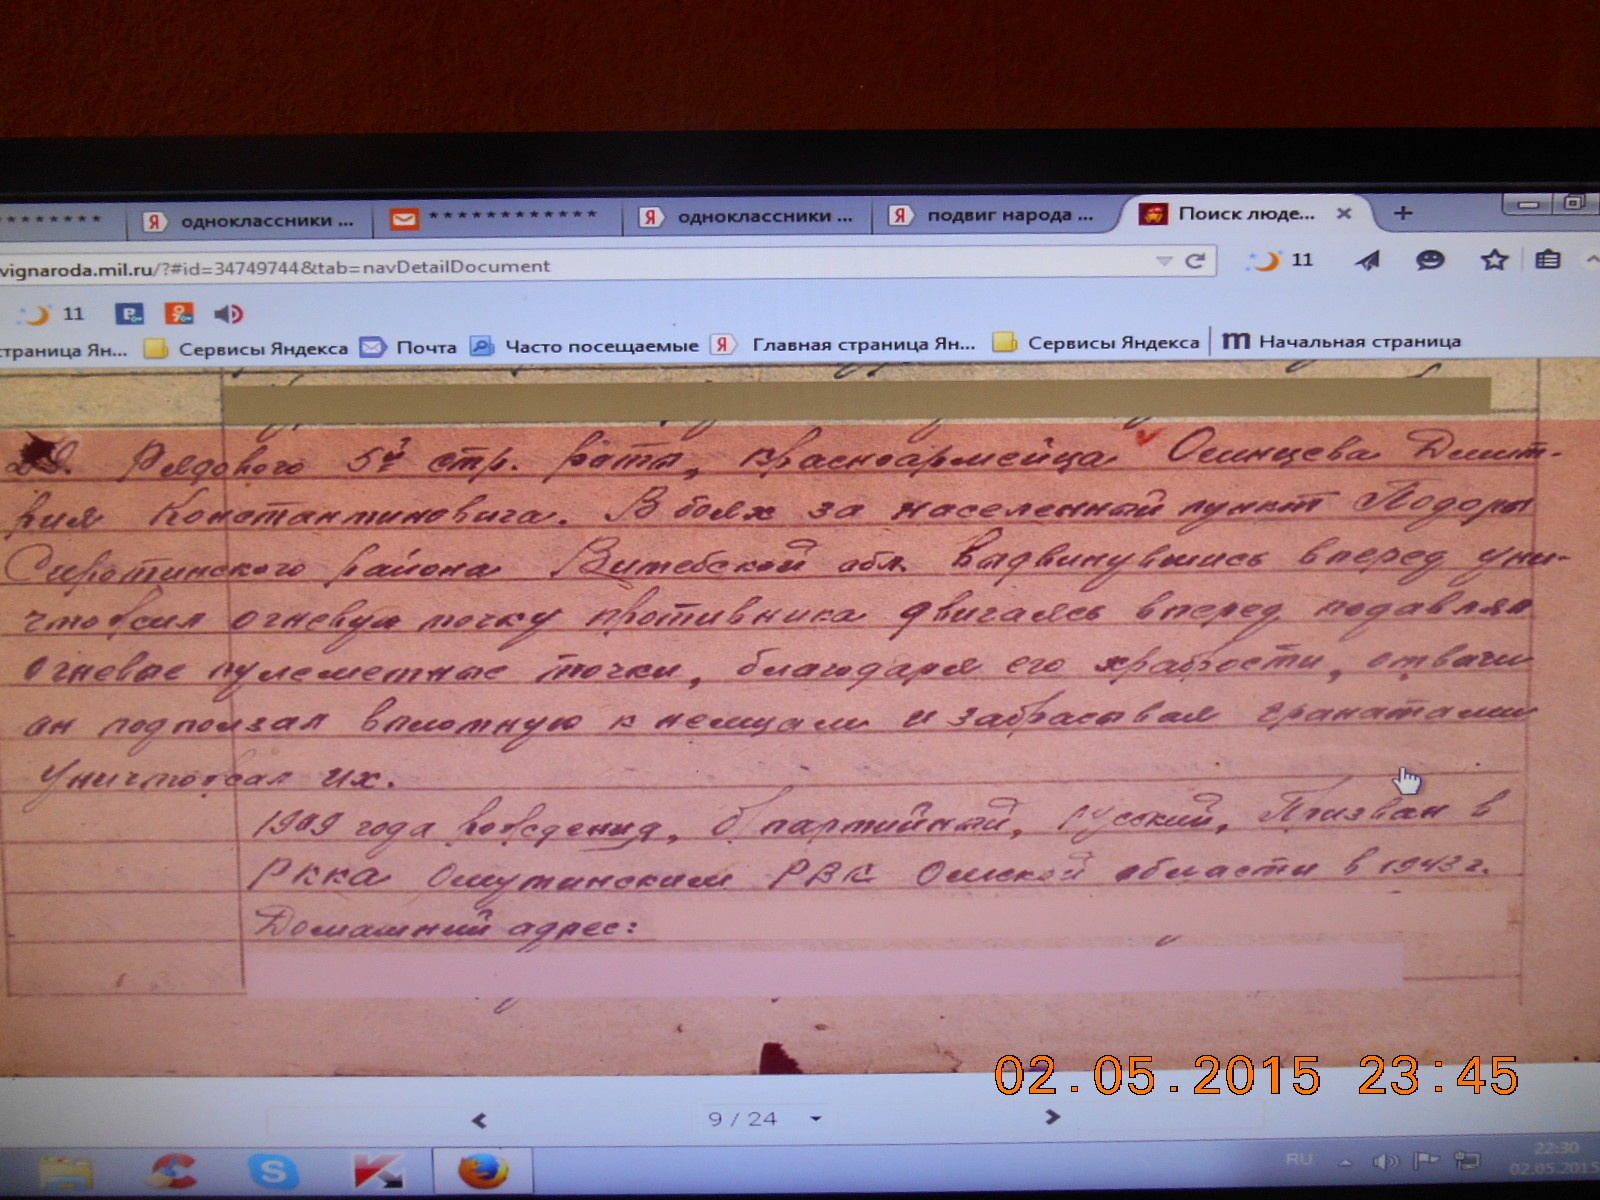 ************ одноклассники ... ************ одноклассники ... подвиг народа ... Поиск люде...
vignaroda.mil.ru/?#id=34749744&tab=navDetailDocument 11
11
страница Ян... Сервисы Яндекса Почта Часто посещаемые Главная страница Ян... Сервисы Яндекса Начальная страница
29. Рядового 5й стр. роты, красноармейца Осинцева Дмит-
рия Константиновича. В боях за населенный пункт Подоры
Сиротинского района Витебской обл. выдвинувшись вперед уни-
чтожил огневую точку противника двигаясь вперед подавлял
огневые пулеметные точки, благодаря его храбрости, отваги
он подползал вплотную к немцам и забрасывая гранатами
уничтожал их.
1909 года рождения, б/партийный, русский, Призван в
РККА Омутинским РВК Омской области в 1943 г.
Домашний адрес:
02.05.2015 23:45
9 / 24
RU 22:30
02.05.2015